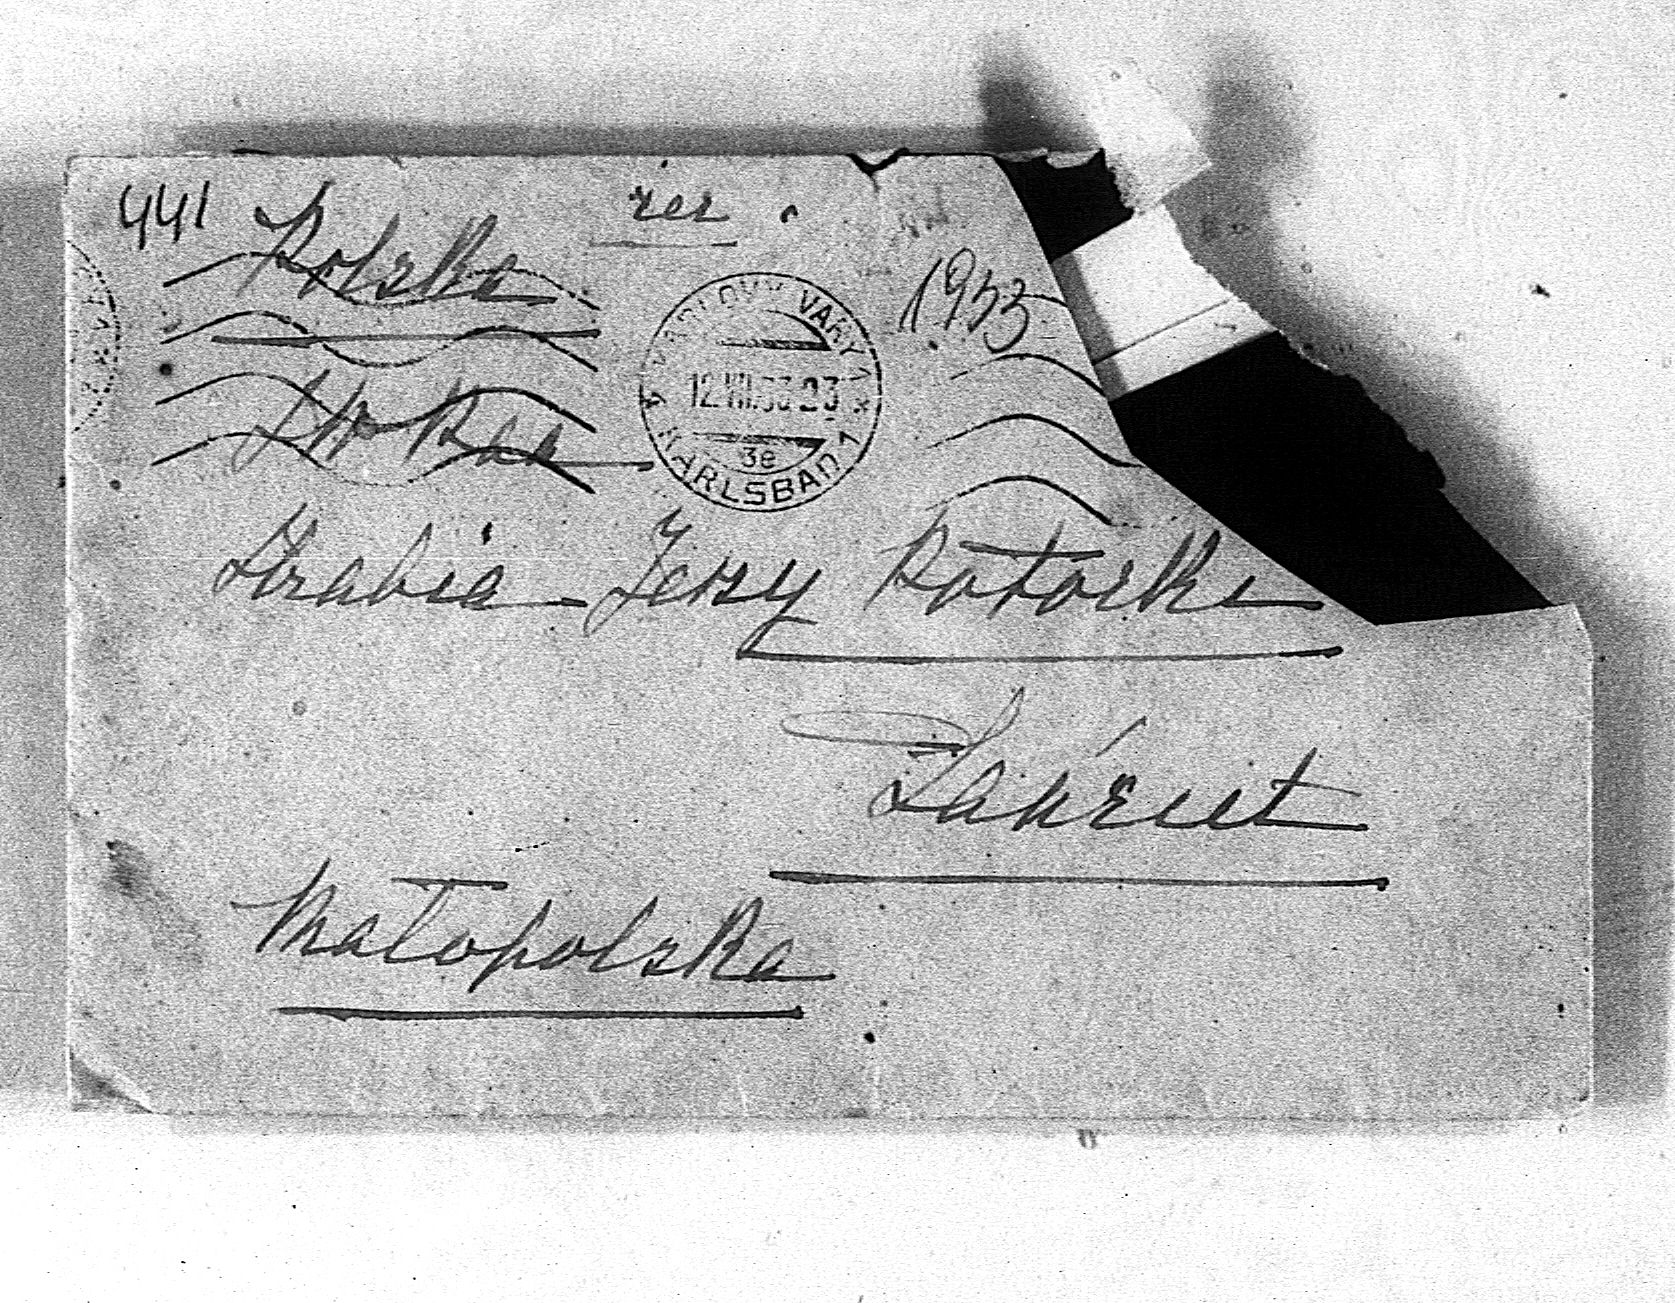 441
rer.
Polska
1933
KARLOVY VARY 1
12.VII.33 23
3e
KARLSBAD 1
JW Pan
Hrabia Jerzy Potocki
Łańcut
Małopolska